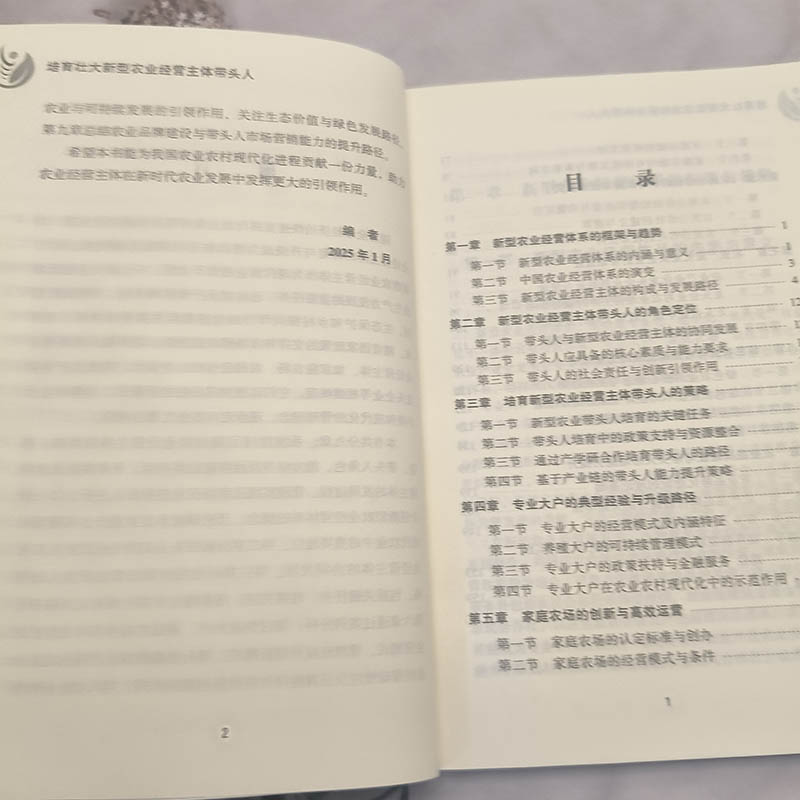 培育壮大新型农业经营主体带头人
农业与可持续发展的引领作用、关注生态价值与绿色发展路径。
第九章总结农业品牌建设与带头人市场营销能力的提升路径。
希望本书能为我国农业农村现代化进程贡献一份力量，助力
农业经营主体在新时代农业发展中发挥更大的引领作用。
编 者
2025年1月
2
目 录
第一章 新型农业经营体系的框架与趋势 1
第一节 新型农业经营体系的内涵与意义 1
第二节 中国农业经营体系的演变 3
第三节 新型农业经营主体的构成与发展路径 4
第二章 新型农业经营主体带头人的角色定位 12
第一节 带头人与新型农业经营主体的协同发展
第二节 带头人应具备的核心素质与能力要求
第三节 带头人的社会责任与创新引领作用
第三章 培育新型农业经营主体带头人的策略
第一节 新型农业带头人培育的关键任务
第二节 带头人培育中的政策支持与资源整合
第三节 通过产学研合作培育带头人的路径
第四节 基于产业链的带头人能力提升策略
第四章 专业大户的典型经验与升级路径
第一节 专业大户的经营模式及内涵特征
第二节 养殖大户的可持续管理模式
第三节 专业大户的政策扶持与金融服务
第四节 专业大户在农业农村现代化中的示范作用
第五章 家庭农场的创新与高效运营
第一节 家庭农场的认定标准与创办
第二节 家庭农场的经营模式与条件
1